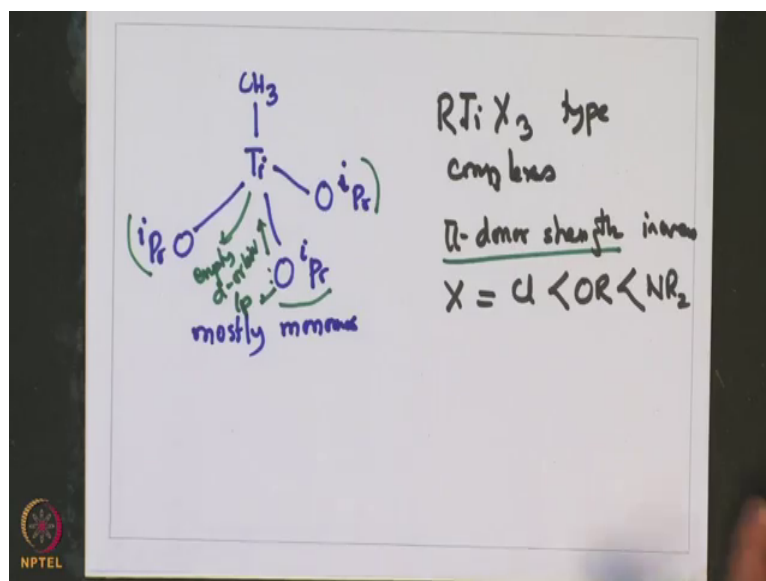 CH3
Ti
iPrO
OiPr)
empty
d-orbital
lp
:OiPr
mostly monomer
RTiX3 type
complexes
π-donor strength increases
X = Cl < OR < NR2
NPTEL